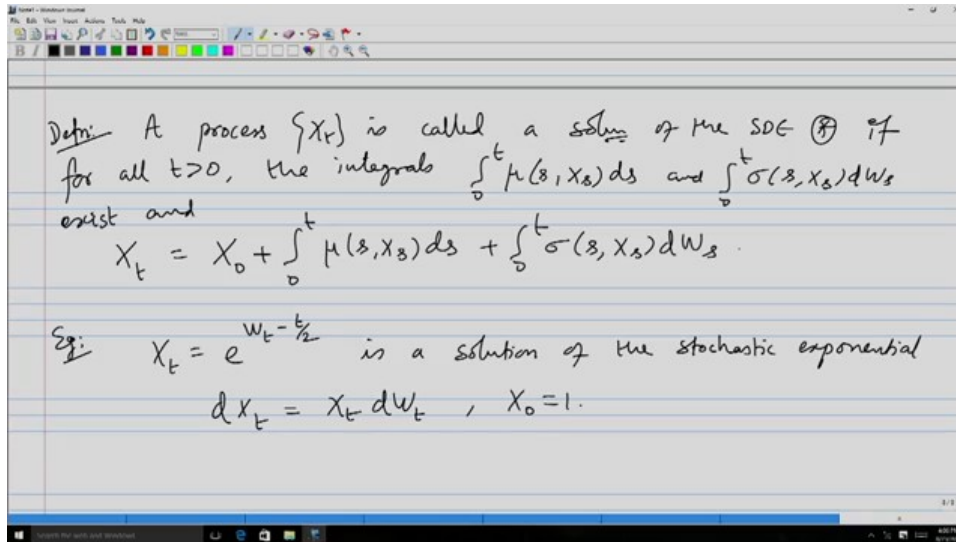 Note1 - Windows Journal
File Edit View Insert Actions Tools Help
B I
Defn: A process {X_t} is called a soln of the SDE ⊛ if
for all t>0, the integrals ∫_0^t μ(s, X_s) ds and ∫_0^t σ(s, X_s) dW_s
exist and
X_t = X_0 + ∫_0^t μ(s, X_s) ds + ∫_0^t σ(s, X_s) dW_s .
Eg: X_t = e^{W_t - t/2} is a solution of the stochastic exponential
dX_t = X_t dW_t , X_0 = 1.
1/1
Search the web and Windows